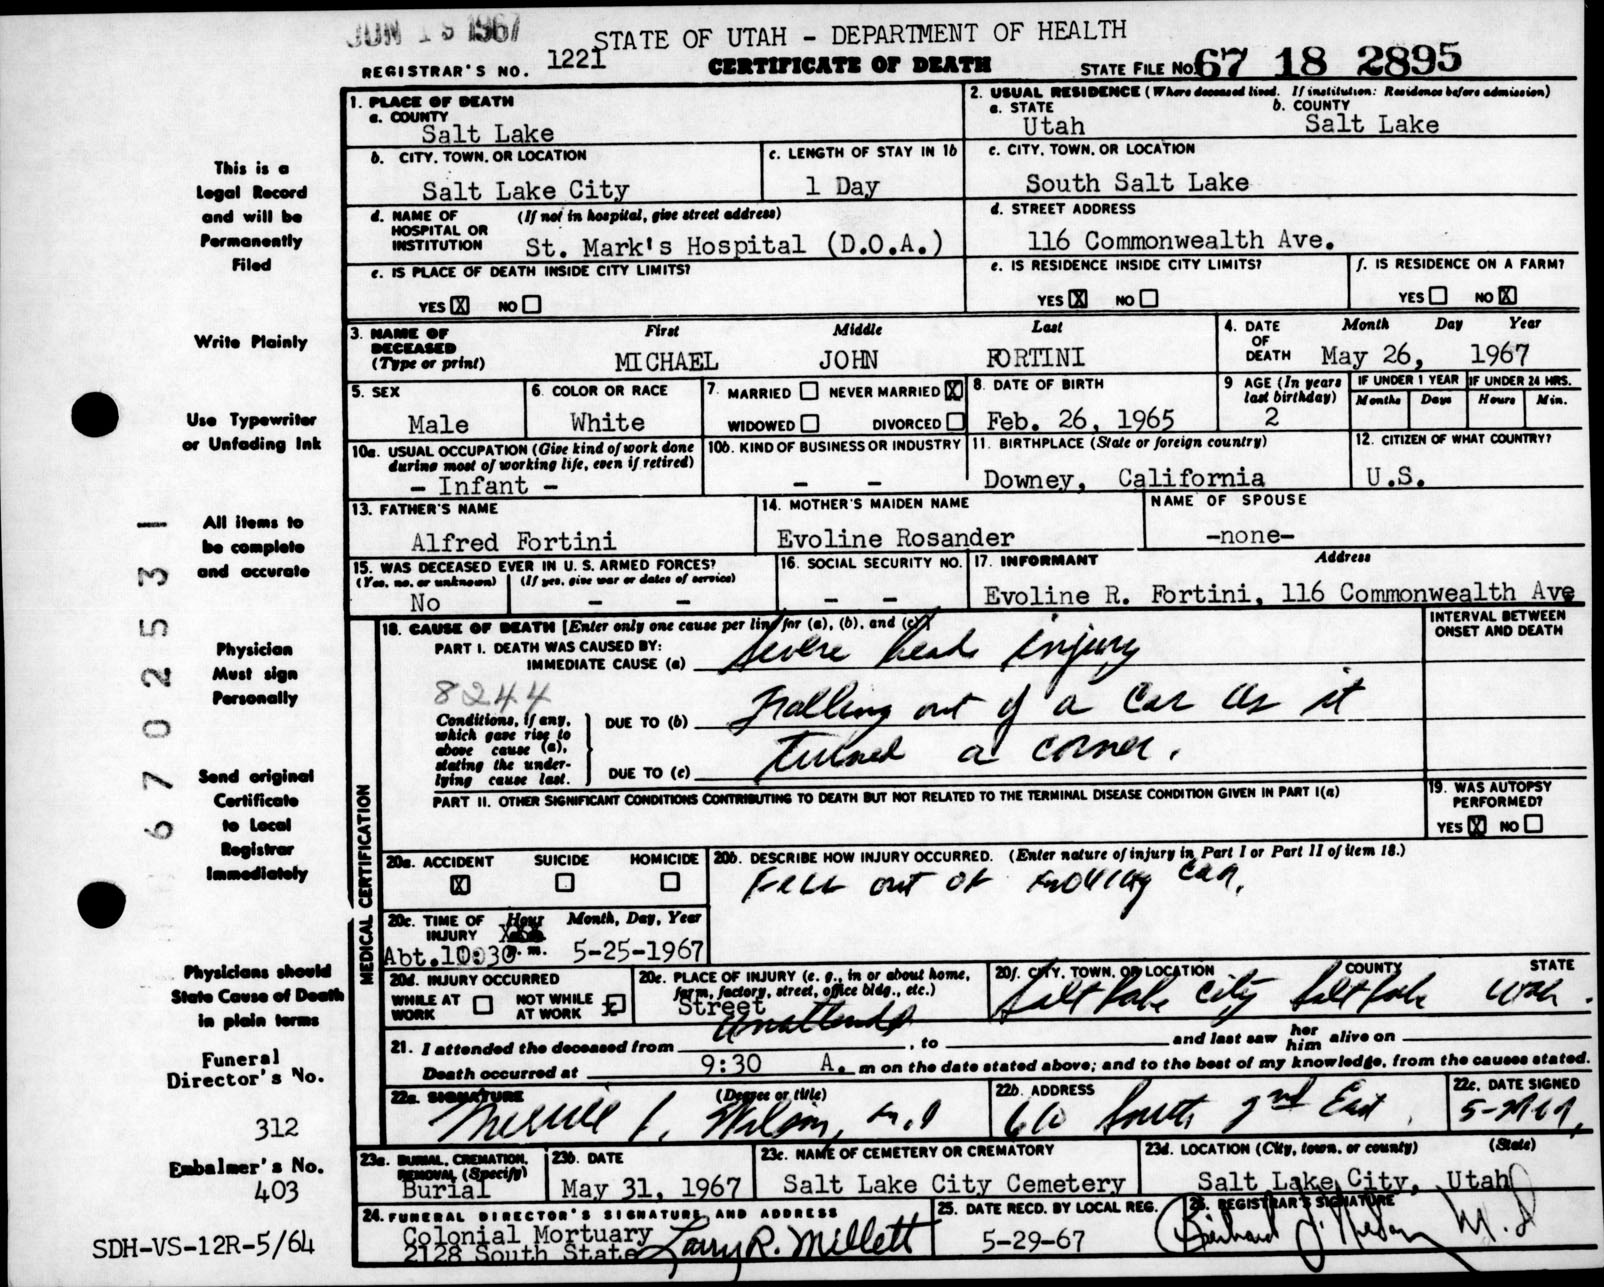 JUN 15 1967
STATE OF UTAH - DEPARTMENT OF HEALTH
REGISTRAR'S NO. 1221 CERTIFICATE OF DEATH STATE FILE NO. 67 18 2895
1. PLACE OF DEATH
a. COUNTY
Salt Lake
2. USUAL RESIDENCE (Where deceased lived. If institution: Residence before admission)
a. STATE b. COUNTY
Utah Salt Lake
b. CITY, TOWN, OR LOCATION
Salt Lake City
c. LENGTH OF STAY IN 1b
1 Day
c. CITY, TOWN, OR LOCATION
South Salt Lake
d. NAME OF HOSPITAL OR INSTITUTION (If not in hospital, give street address)
St. Mark's Hospital (D.O.A.)
d. STREET ADDRESS
116 Commonwealth Ave.
e. IS PLACE OF DEATH INSIDE CITY LIMITS?
YES X NO
e. IS RESIDENCE INSIDE CITY LIMITS?
YES X NO
f. IS RESIDENCE ON A FARM?
YES NO X
3. NAME OF DECEASED (Type or print) First Middle Last
MICHAEL JOHN FORTINI
4. DATE OF DEATH Month Day Year
May 26, 1967
5. SEX
Male
6. COLOR OR RACE
White
7. MARRIED NEVER MARRIED X
WIDOWED DIVORCED
8. DATE OF BIRTH
Feb. 26, 1965
9 AGE (In years last birthday)
2
IF UNDER 1 YEAR IF UNDER 24 HRS.
Months Days Hours Min.
10a. USUAL OCCUPATION (Give kind of work done during most of working life, even if retired)
- Infant -
10b. KIND OF BUSINESS OR INDUSTRY
- -
11. BIRTHPLACE (State or foreign country)
Downey, California
12. CITIZEN OF WHAT COUNTRY?
U.S.
13. FATHER'S NAME
Alfred Fortini
14. MOTHER'S MAIDEN NAME
Evoline Rosander
NAME OF SPOUSE
-none-
15. WAS DECEASED EVER IN U. S. ARMED FORCES?
(Yes, no, or unknown) (If yes, give war or dates of service)
No - -
16. SOCIAL SECURITY NO.
- -
17. INFORMANT Address
Evoline R. Fortini, 116 Commonwealth Ave
MEDICAL CERTIFICATION
18. CAUSE OF DEATH [Enter only one cause per line for (a), (b), and (c)]
INTERVAL BETWEEN ONSET AND DEATH
PART I. DEATH WAS CAUSED BY:
IMMEDIATE CAUSE (a) Severe head injury
8244
Conditions, if any, which gave rise to above cause (a), stating the underlying cause last.
DUE TO (b) Falling out of a car as it
DUE TO (c) turned a corner.
PART II. OTHER SIGNIFICANT CONDITIONS CONTRIBUTING TO DEATH BUT NOT RELATED TO THE TERMINAL DISEASE CONDITION GIVEN IN PART I(a)
19. WAS AUTOPSY PERFORMED?
YES X NO
20a. ACCIDENT SUICIDE HOMICIDE
X
20b. DESCRIBE HOW INJURY OCCURRED. (Enter nature of injury in Part I or Part II of item 18.)
Fell out of moving car.
20c. TIME OF INJURY Hour Month, Day, Year
Abt. 10:30 p.m. 5-25-1967
20d. INJURY OCCURRED
WHILE AT WORK NOT WHILE AT WORK X
20e. PLACE OF INJURY (e. g., in or about home, farm, factory, street, office bldg., etc.)
Street
20f. CITY, TOWN, OR LOCATION COUNTY STATE
Salt Lake City Salt Lake Utah.
21. I attended the deceased from Unattended, to and last saw her him alive on
Death occurred at 9:30 A. m on the date stated above; and to the best of my knowledge, from the causes stated.
22a. SIGNATURE (Degree or title)
Merrill L. Wilson, M.D
22b. ADDRESS
610 South 2nd East,
22c. DATE SIGNED
5-29-67,
23a. BURIAL, CREMATION, REMOVAL (Specify)
Burial
23b. DATE
May 31, 1967
23c. NAME OF CEMETERY OR CREMATORY
Salt Lake City Cemetery
23d. LOCATION (City, town, or county) (State)
Salt Lake City, Utah
24. FUNERAL DIRECTOR'S SIGNATURE AND ADDRESS
Colonial Mortuary
2128 South State Larry R. Millett
25. DATE RECD. BY LOCAL REG.
5-29-67
26. REGISTRAR'S SIGNATURE
M.D
This is a
Legal Record
and will be
Permanently
Filed
Write Plainly
Use Typewriter
or Unfading Ink
All items to
be complete
and accurate
Physician
Must sign
Personally
Send original
Certificate
to Local
Registrar
Immediately
Physicians should
State Cause of Death
in plain terms
Funeral
Director's No.
312
Embalmer's No.
403
SDH-VS-12R-5/64
6702531